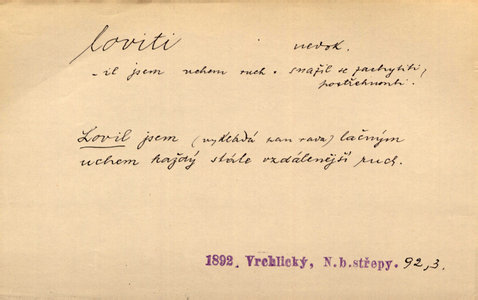 loviti nedok.
-il jsem uchem ruch. snažil se zachytiti,
postřehnouti.
Lovil jsem (vykládá pan rada) lačným
uchem každý stále vzdálenější ruch.
1892. Vrchlický, N.b.střepy. 92,3.